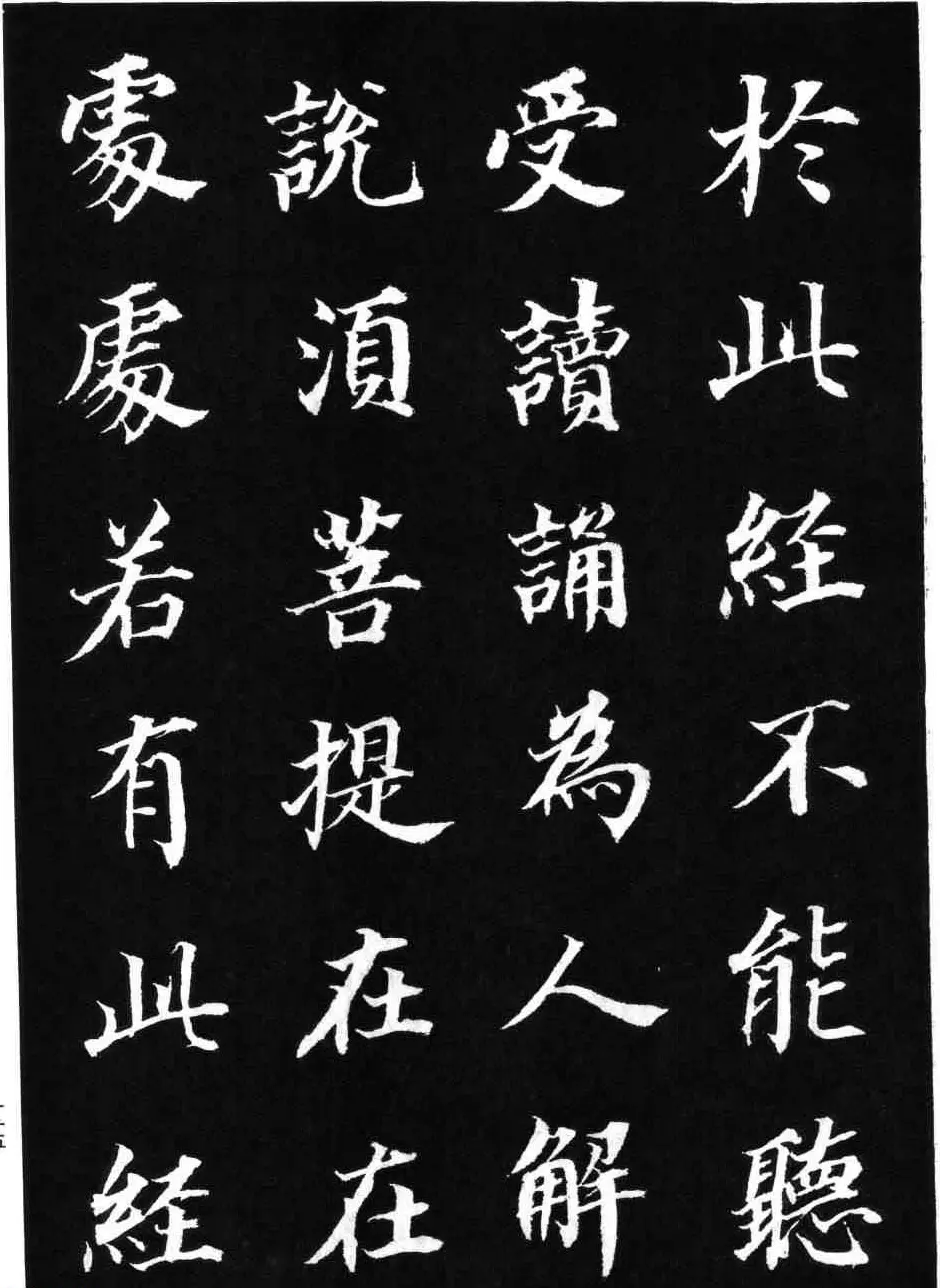 於此経不能聽
受讀誦為人解
說須菩提在在
處處若有此経